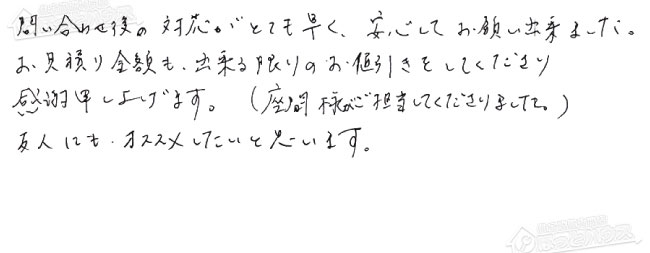 問い合わせ後の対応がとても早く、安心してお願い出来ました。
お見積り金額も、出来る限りのお値引きをしてくださり
感謝申し上げます。（座間様がご担当してくださりました。）
友人にも、オススメしたいと思います。